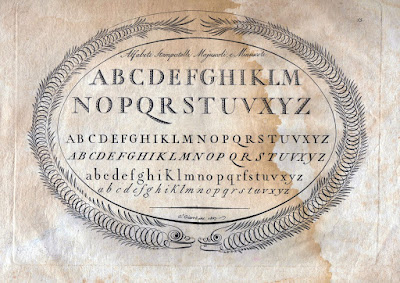 Alfabeti Stampatelli, Majuscoli, e Minuscoli
ABCDEFGHIKLM
NOPQRSTUVXYZ
ABCDEFGHIKLMNOPQRSTUVXYZ
ABCDEFGHIKLMNOPQRSTUVXYZ
abcdefghiKlmnopqrſstuvxyz
abcdefghiklmnopqrstuvxyz